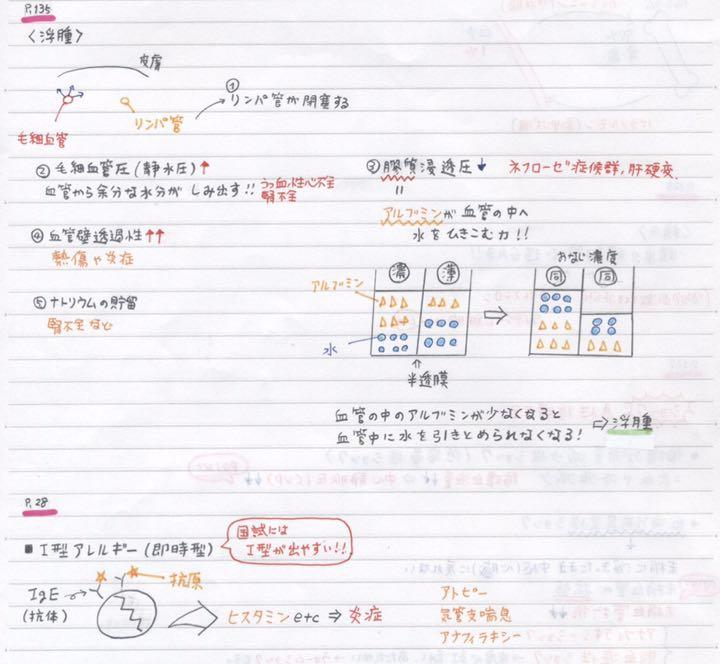 P.135
〈浮腫〉
皮膚
① リンパ管が閉塞する
リンパ管
毛細血管
② 毛細血管圧(静水圧)↑
血管から余分な水分が しみ出す!! うっ血性心不全
腎不全
③ 膠質浸透圧↓ ネフローゼ症候群,肝硬変
||
アルブミンが血管の中へ
水をひきこむ力!!
④ 血管壁透過性↑↑
熱傷や炎症
⑤ ナトリウムの貯留
腎不全など
おなじ濃度
濃 薄 同 同
アルブミン
水
半透膜
血管の中のアルブミンが少なくなると
血管中に水を引きとめられなくなる! ⇒ 浮腫
P.28
■ I型アレルギー(即時型)
国試には
I型が出やすい!!
IgE
(抗体)
抗原
ヒスタミン etc ⇒ 炎症
アトピー
気管支喘息
アナフィラキシー